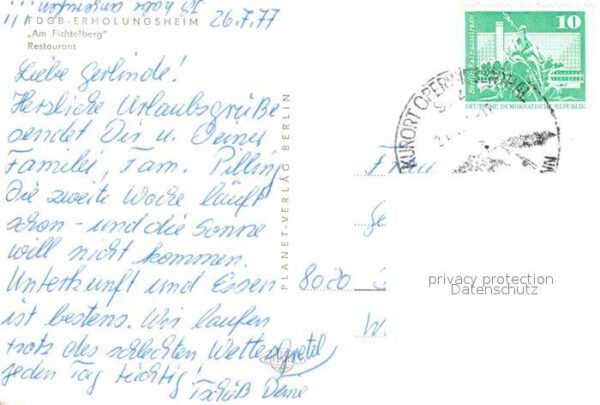 FDGB-ERHOLUNGSHEIM
„Am Fichtelberg"
Restaurant
26.7.77
Liebe Gerlinde!
Herzliche Urlaubsgrüße
sendet Dir u. Deiner
Familie, Fam. Pilling
Die zweite Woche läuft
schon - und die Sonne
will nicht kommen.
Unterkunft und Essen
ist bestens. Wir laufen
trotz des schlechten Wetters
jeden Tag tüchtig!
Tschüß Deine
PLANET-VERLAG BERLIN
10
Berlin, Rathausstraße
DEUTSCHE DEMOKRATISCHE REPUBLIK
KURORT OBERWIESENTHAL
Frau
Ge
8020
W
privacy protection
Datenschutz